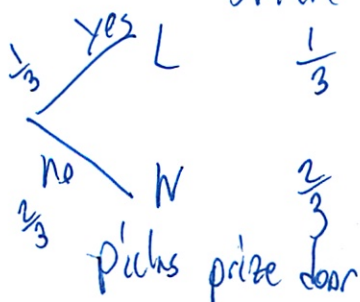 yes L 1/3
1/3
no W 2/3
2/3
picks prize door